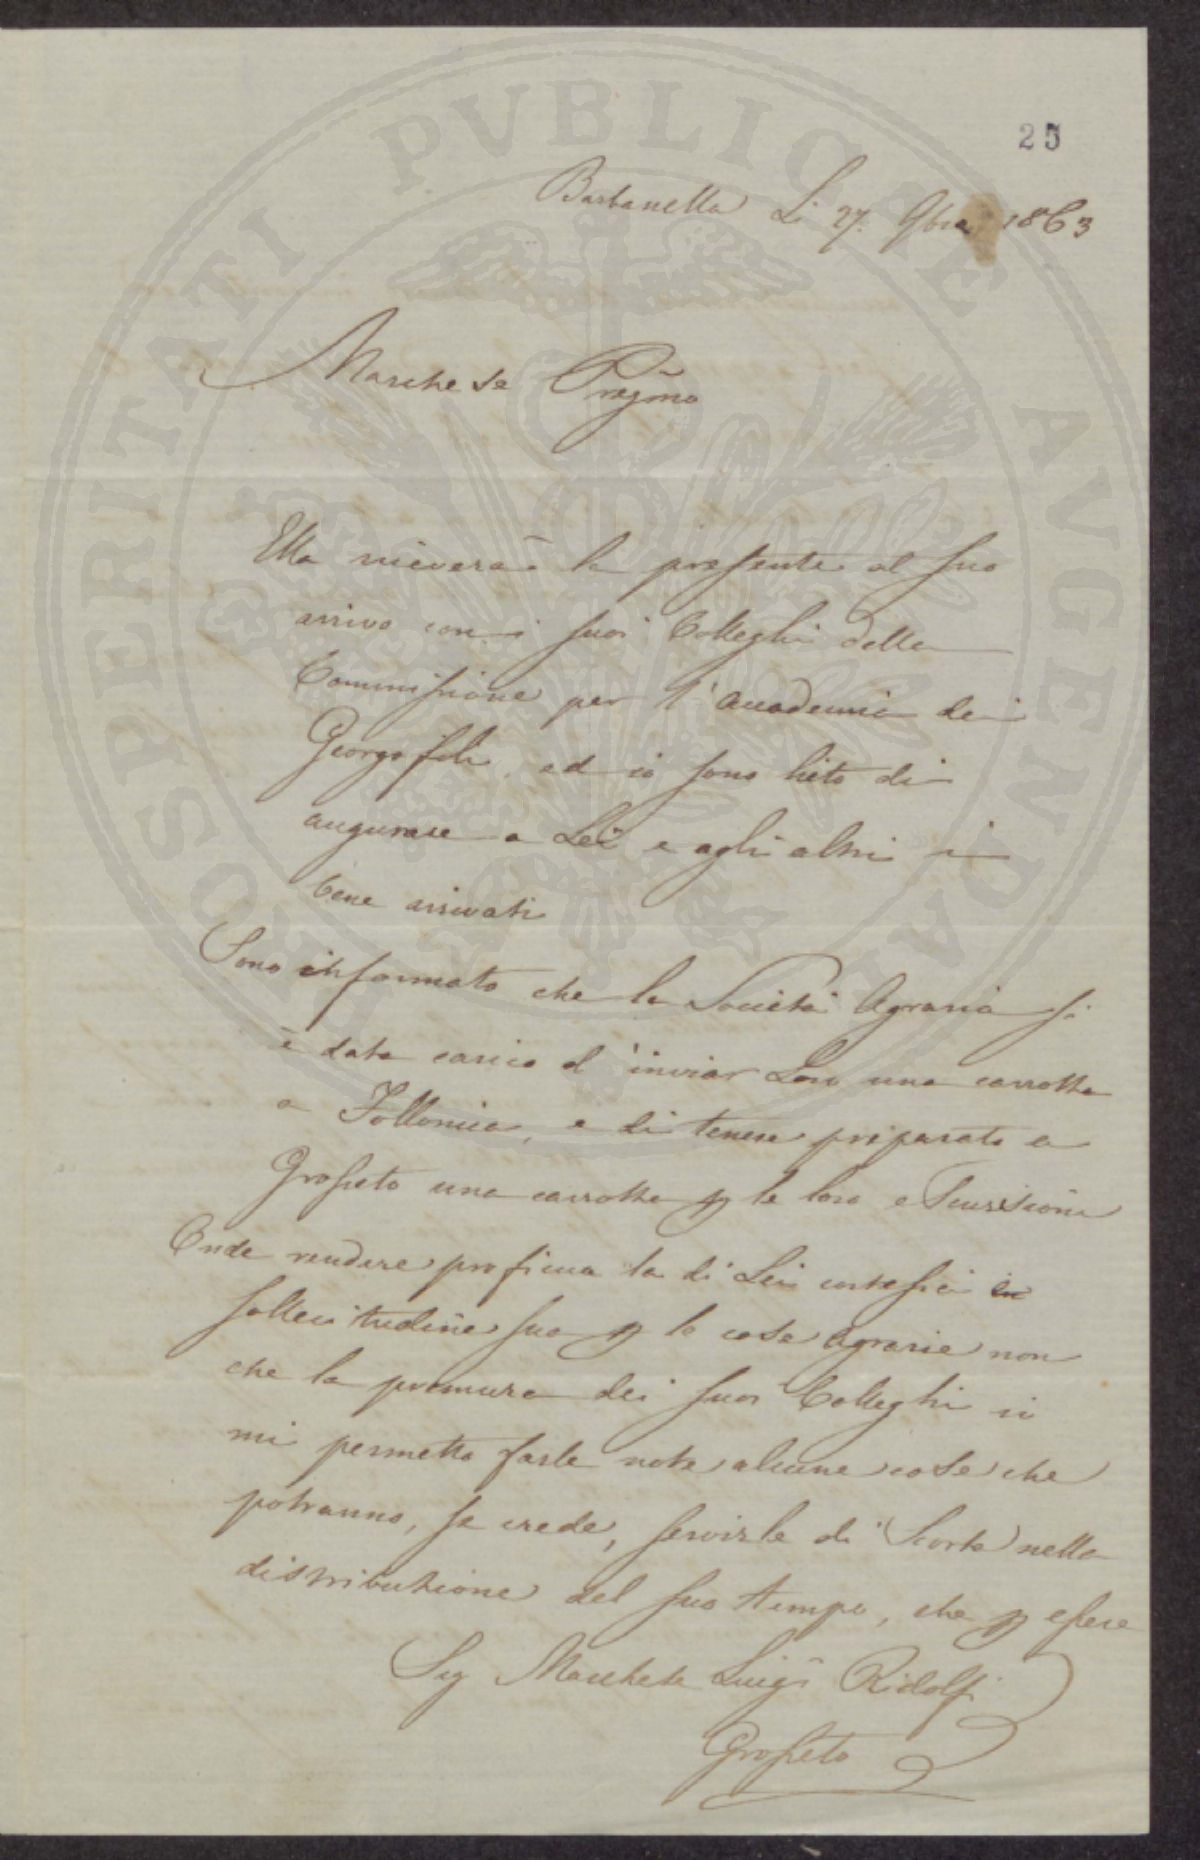 25
Barbanella Li 27. 9bre 1863
Marchese Pregmo
Ella riceverà la presente al suo
arrivo con i suoi Colleghi della
Commissione per l'Accademia dei
Georgofili, ed io sono lieto di
augurare a Lei e agli altri i
bene arrivati
Sono informato che la Società Agraria si
è data carico d'inviar Loro una carrozza
a Follonica, e di tenere preparata a
Grosseto una carrozza p le loro escursioni
Onde rendere proficua la di Lei cortesia
sollecitudine sua p le cose Agrarie non
che la premura dei suoi Colleghi io
mi permetto farle note alcune cose che
potranno, se crede, servirle di Scorta nella
distribuzione del suo tempo, che p essere
Sig Marchese Luigi Ridolfi
Grosseto
PROSPERITATI PVBLICAE AVGENDAE